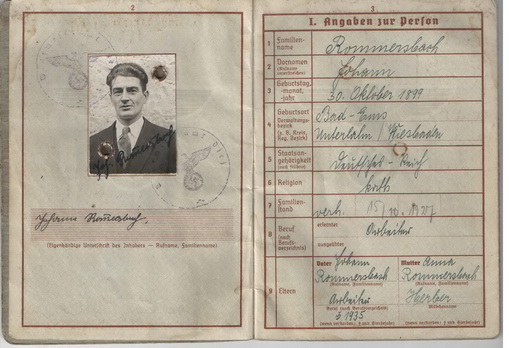 2
Johann Rommersbach,
(Eigenhändige Unterschrift des Inhabers — Rufname, Familienname)
3
I. Angaben zur Person
1 Familien-
name
Rommersbach
2 Vornamen
(Rufname
unterstreichen)
Johann
3 Geburtstag,
-monat,
-jahr
30. Oktober 1899
4 Geburtsort
Verwaltungs-
bezirk
(z. B. Kreis,
Reg.-Bezirk)
Bad-Ems
Unterlahn / Wiesbaden
5 Staatsan-
gehörigkeit
(auch frühere)
Deutsches-Reich
6 Religion
kath
7 Familien-
stand
verh.
8 Beruf
(nach
Berufs-
verzeichnis)
erlernter
Arbeiter
ausgeübter
9 Eltern
Vater Johann
Rommersbach
(Rufname, Familienname)
Arbeiter
(Beruf nach Berufsverzeichnis)
1935
(wenn verstorben: † und Sterbejahr)
Mutter Anna
Rommersbach
(Rufname, Familienname)
Herber
(Mädchenname)
(wenn verstorben: † und Sterbejahr)